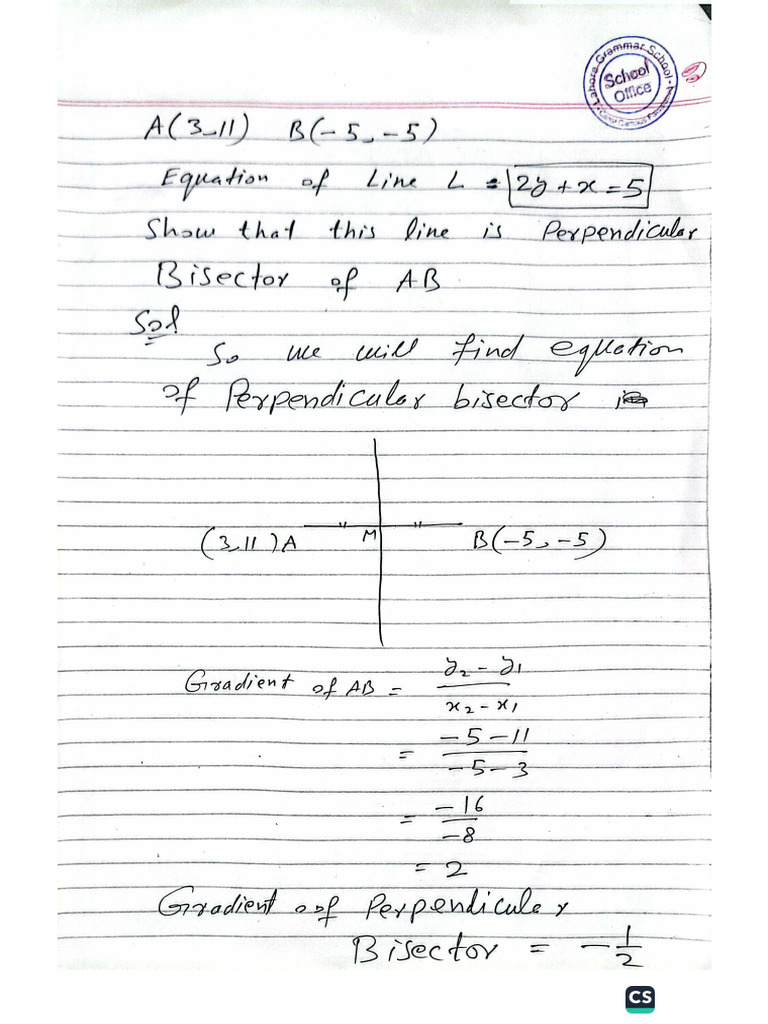 Lahore Grammar School
School
Office
A(3,11) B(-5,-5)
Equation of Line L = 2y+x=5
Show that this line is Perpendicular
Bisector of AB
Sol
So we will find equation
of Perpendicular bisector
(3,11)A M B(-5,-5)
Gradient of AB = y₂-y₁/x₂-x₁
= -5-11/-5-3
= -16/-8
= 2
Gradient of Perpendicular
Bisector = -1/2
CS